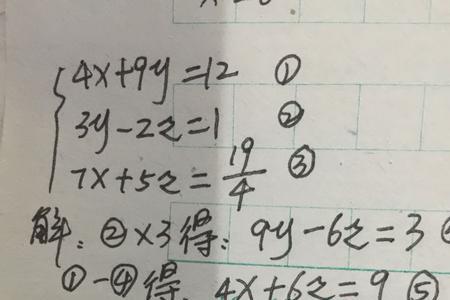 4x+9y=12 ①
3y-2z=1 ②
7x+5z=19/4 ③
解:②×3得:9y-6z=3
①-④得:4x+6z=9 ⑤